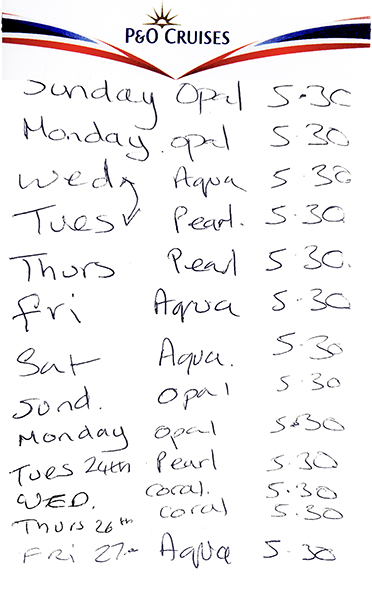 P&O CRUISES
Sunday Opal 5.30
Monday. opal 5.30
Wed Aqua 5.30
Tues Pearl. 5.30
Thurs Pearl 5.30.
Fri Aqua 5.30
Sat Aqua. 5.30
Sund. Opal 5.30
Monday Opal 5.30
Tues 24th Pearl 5.30
WED. Coral. 5.30
Thurs 26th Coral 5.30
FRI 27th Aqua 5.30